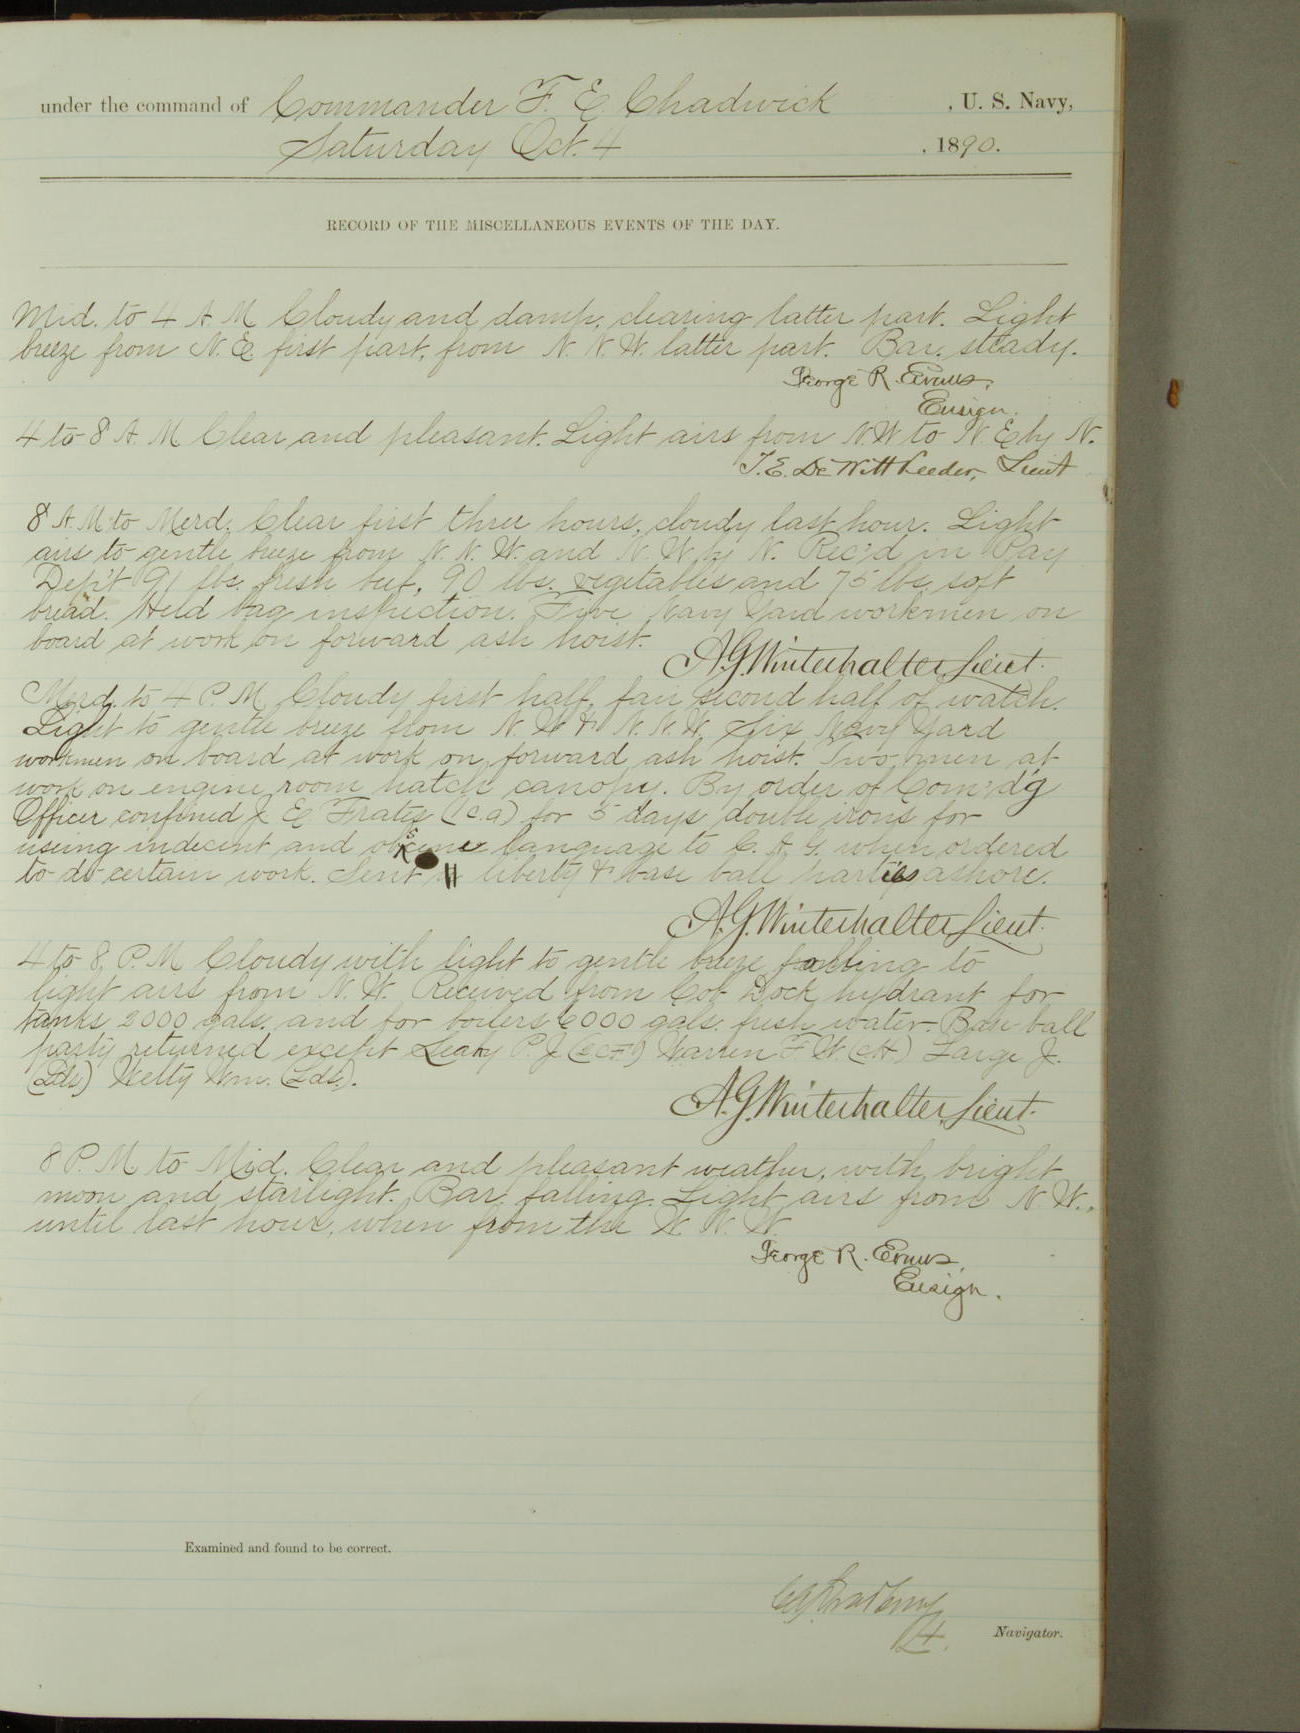 under the command of Commander F. E. Chadwick , U. S. Navy,
Saturday Oct. 4 , 1890.
RECORD OF THE MISCELLANEOUS EVENTS OF THE DAY.
Mid. to 4 A. M Cloudy and damp, clearing latter part. Light
breeze from N. E. first part, from N. N. W. latter part. Bar. steady.
George R. Evans,
Ensign.
4 to 8 A. M Clear and pleasant. Light airs from N.W to N. E by N.
T. E. DeWitt Veeder, Lieut
8 A. M to Merd. Clear first three hours, cloudy last hour. Light
airs to gentle breeze from N. N. W. and N. W. by N. Rec'd in Pay
Dep't 91 lbs. fresh beef, 90 lbs. vegitables and 75 lbs. soft
bread. Held bag inspection. Five Navy Yard workmen on
board at work on forward ash hoist.
A.G. Winterhalter, Lieut.
Merd. to 4 P. M. Cloudy first half, fair second half of watch.
Light to gentle breeze from N. W & N. N. W. Six Navy Yard
workmen on board at work on forward ash hoist. Two men at
work on engine room hatch canopy. By order of Com'd'g
Officer confined J. E. Frates (C.a) for 5 days double irons for
using indecent and obscene language to C. A. G. when ordered
to do certain work. Sent liberty & base ball parties ashore.
A.G. Winterhalter, Lieut.
4 to 8 P. M Cloudy with light to gentle breeze falling to
light airs from N. W. Received from Cob Dock hydrant for
tanks 2000 gals. and for boilers 6000 gals. fresh water. Base ball
party returned except Leahy P. J. Warren F. W. Large J.
(Lds) Welty Wm. (Lds.).
A.G. Winterhalter, Lieut.
8 P. M to Mid. Clear and pleasant weather, with bright
moon and starlight. Bar. falling. Light airs from N. W.,
until last hour, when from the W. N. W.
George R. Evans,
Ensign.
Examined and found to be correct.
Navigator.